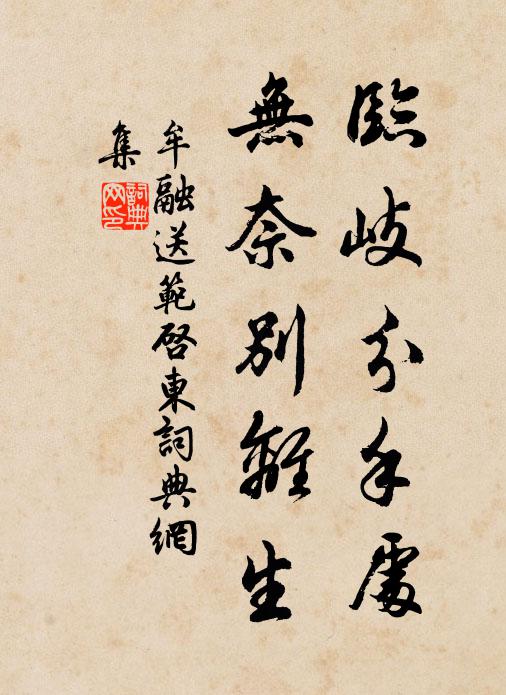 臨岐分手處
無奈別離生
牟融送範啓東詞典網
集
詞典
网印